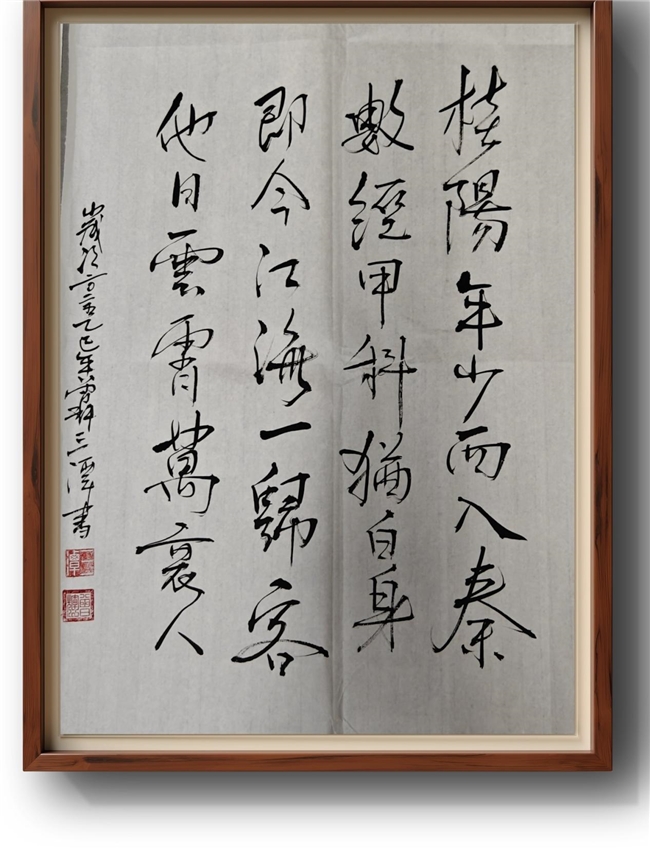 桂陽年少西入秦
數經甲科猶白身
即今江海一歸客
他日雲霄萬裏人
歲乙巳年三潭書